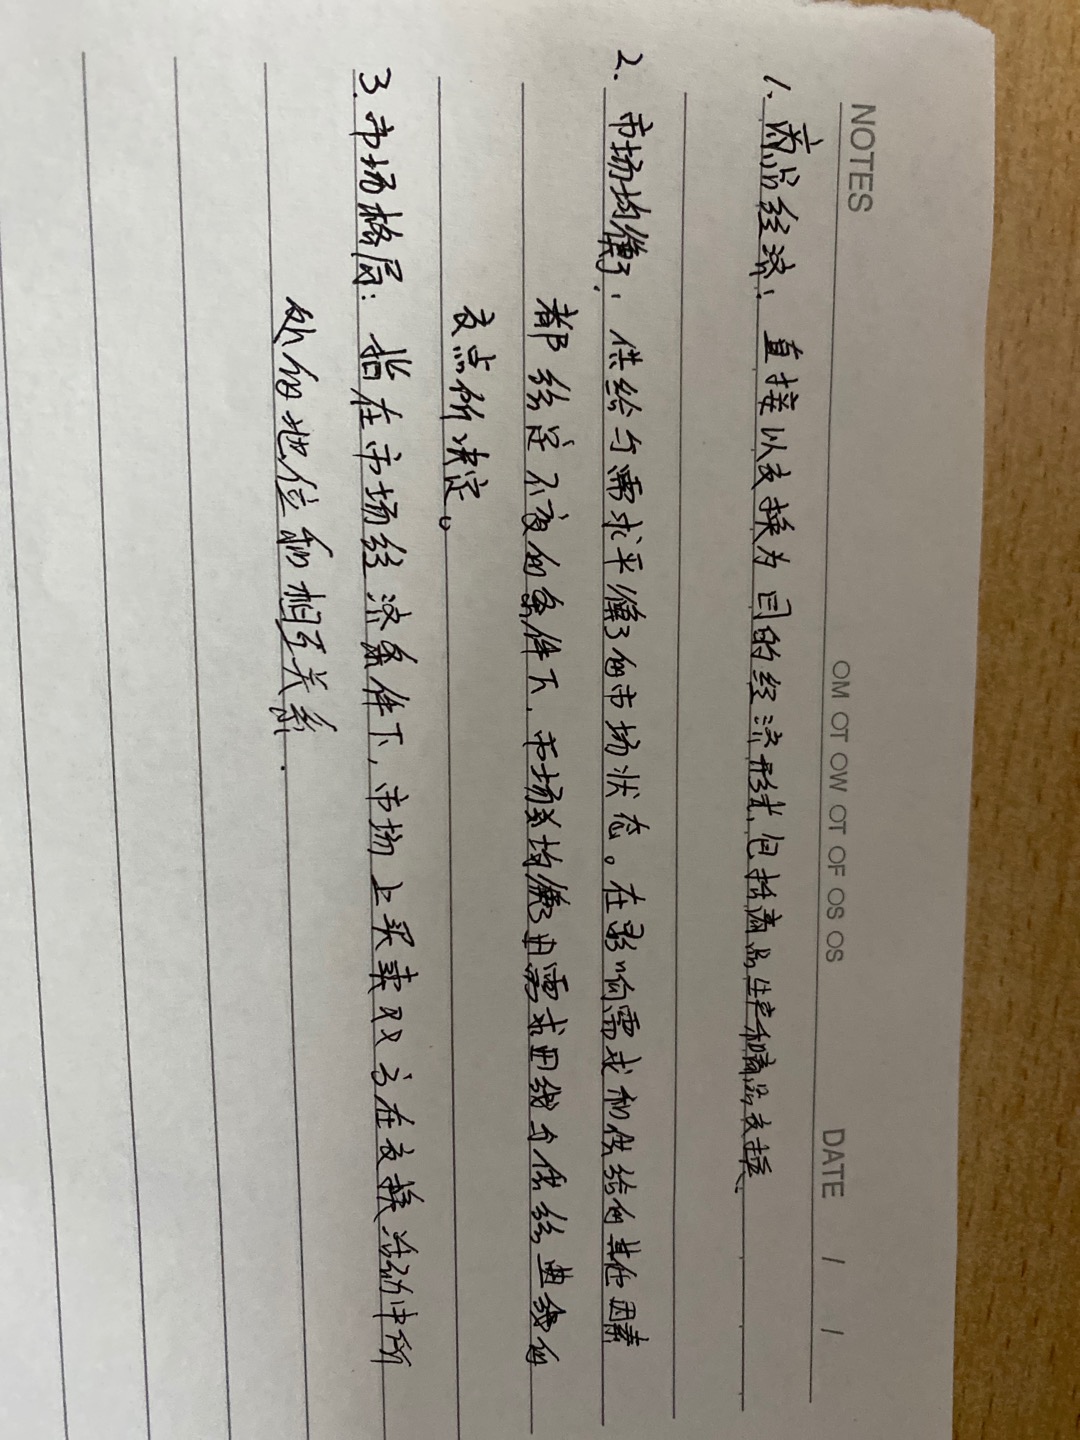 NOTES
OM OT OW OT OF OS OS
DATE / /
1. 商品经济：直接以交换为目的经济形式，包括商品生产和商品交换.
2. 市场均衡：供给与需求平衡的市场状态。在影响需求和供给的其他因素
都给定不变的条件下，市场均衡由需求曲线与供给曲线的
交点所决定。
3. 市场格局：指在市场经济条件下，市场上买卖双方在交换活动中所
处的地位和相互关系.